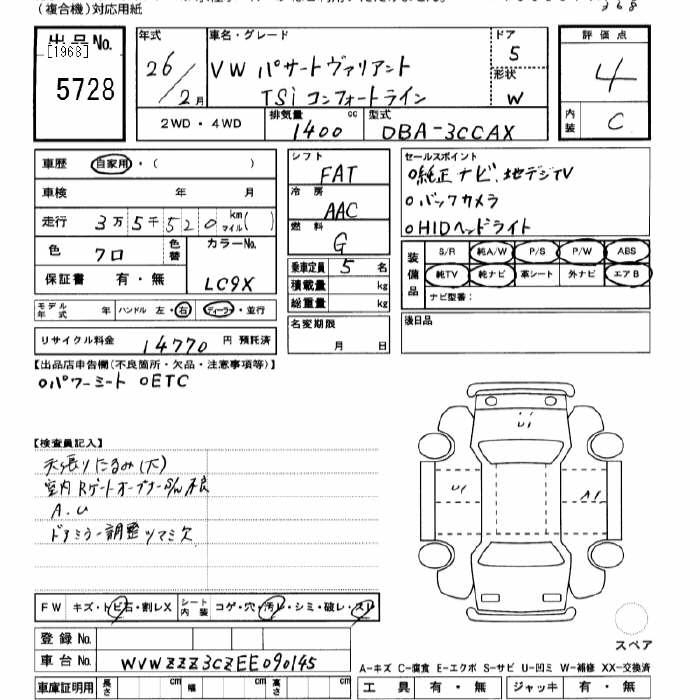 (複合機)対応用紙
368
出品No.
[1968]
5728
年式 車名・グレード ドア 評価点
26/2月 VW パサートヴァリアント 5 4
TSi コンフォートライン 形状 W
2WD・4WD 排気量 1400 cc 型式 DBA-3CCAX 内装 C
車歴 自家用・( )
車検 年 月
走行 3万5千520 km マイル( )
色 クロ 色替 カラーNo. LC9X
保証書 有・無
モデル年式 年 ハンドル 左・右 ディーラー・並行
リサイクル料金 14770 円 預託済
シフト FAT
冷房 AAC
燃料 G
乗車定員 5 名
積載量 kg
総重量 kg
名変期限
月 日
セールスポイント
o純正ナビ、地デジTV
oバックカメラ
oHIDヘッドライト
装備品 S/R 純A/W P/S P/W ABS
純TV 純ナビ 革シート 外ナビ エアB
ナビ型番:
後日品
【出品店申告欄(不良箇所・欠品・注意事項等)】
oパワーシート oETC
【検査員記入】
天張りたるみ(大)
室内Rゲートオープナー
A.U
ドアミラー調整ツマミ欠
U1
U1
A1
スペア
FW キズ・トビ石・割レX シート内装 コゲ・穴・汚レ・シミ・破レ・スレ
登録No.
車台No. WVWZZZ3CZEE090145
車庫証明用 長さ cm 幅 cm 高さ cm
A-キズ C-腐食 E-エクボ S-サビ U-凹ミ W-補修 XX-交換済
工具 有・無 ジャッキ 有・無